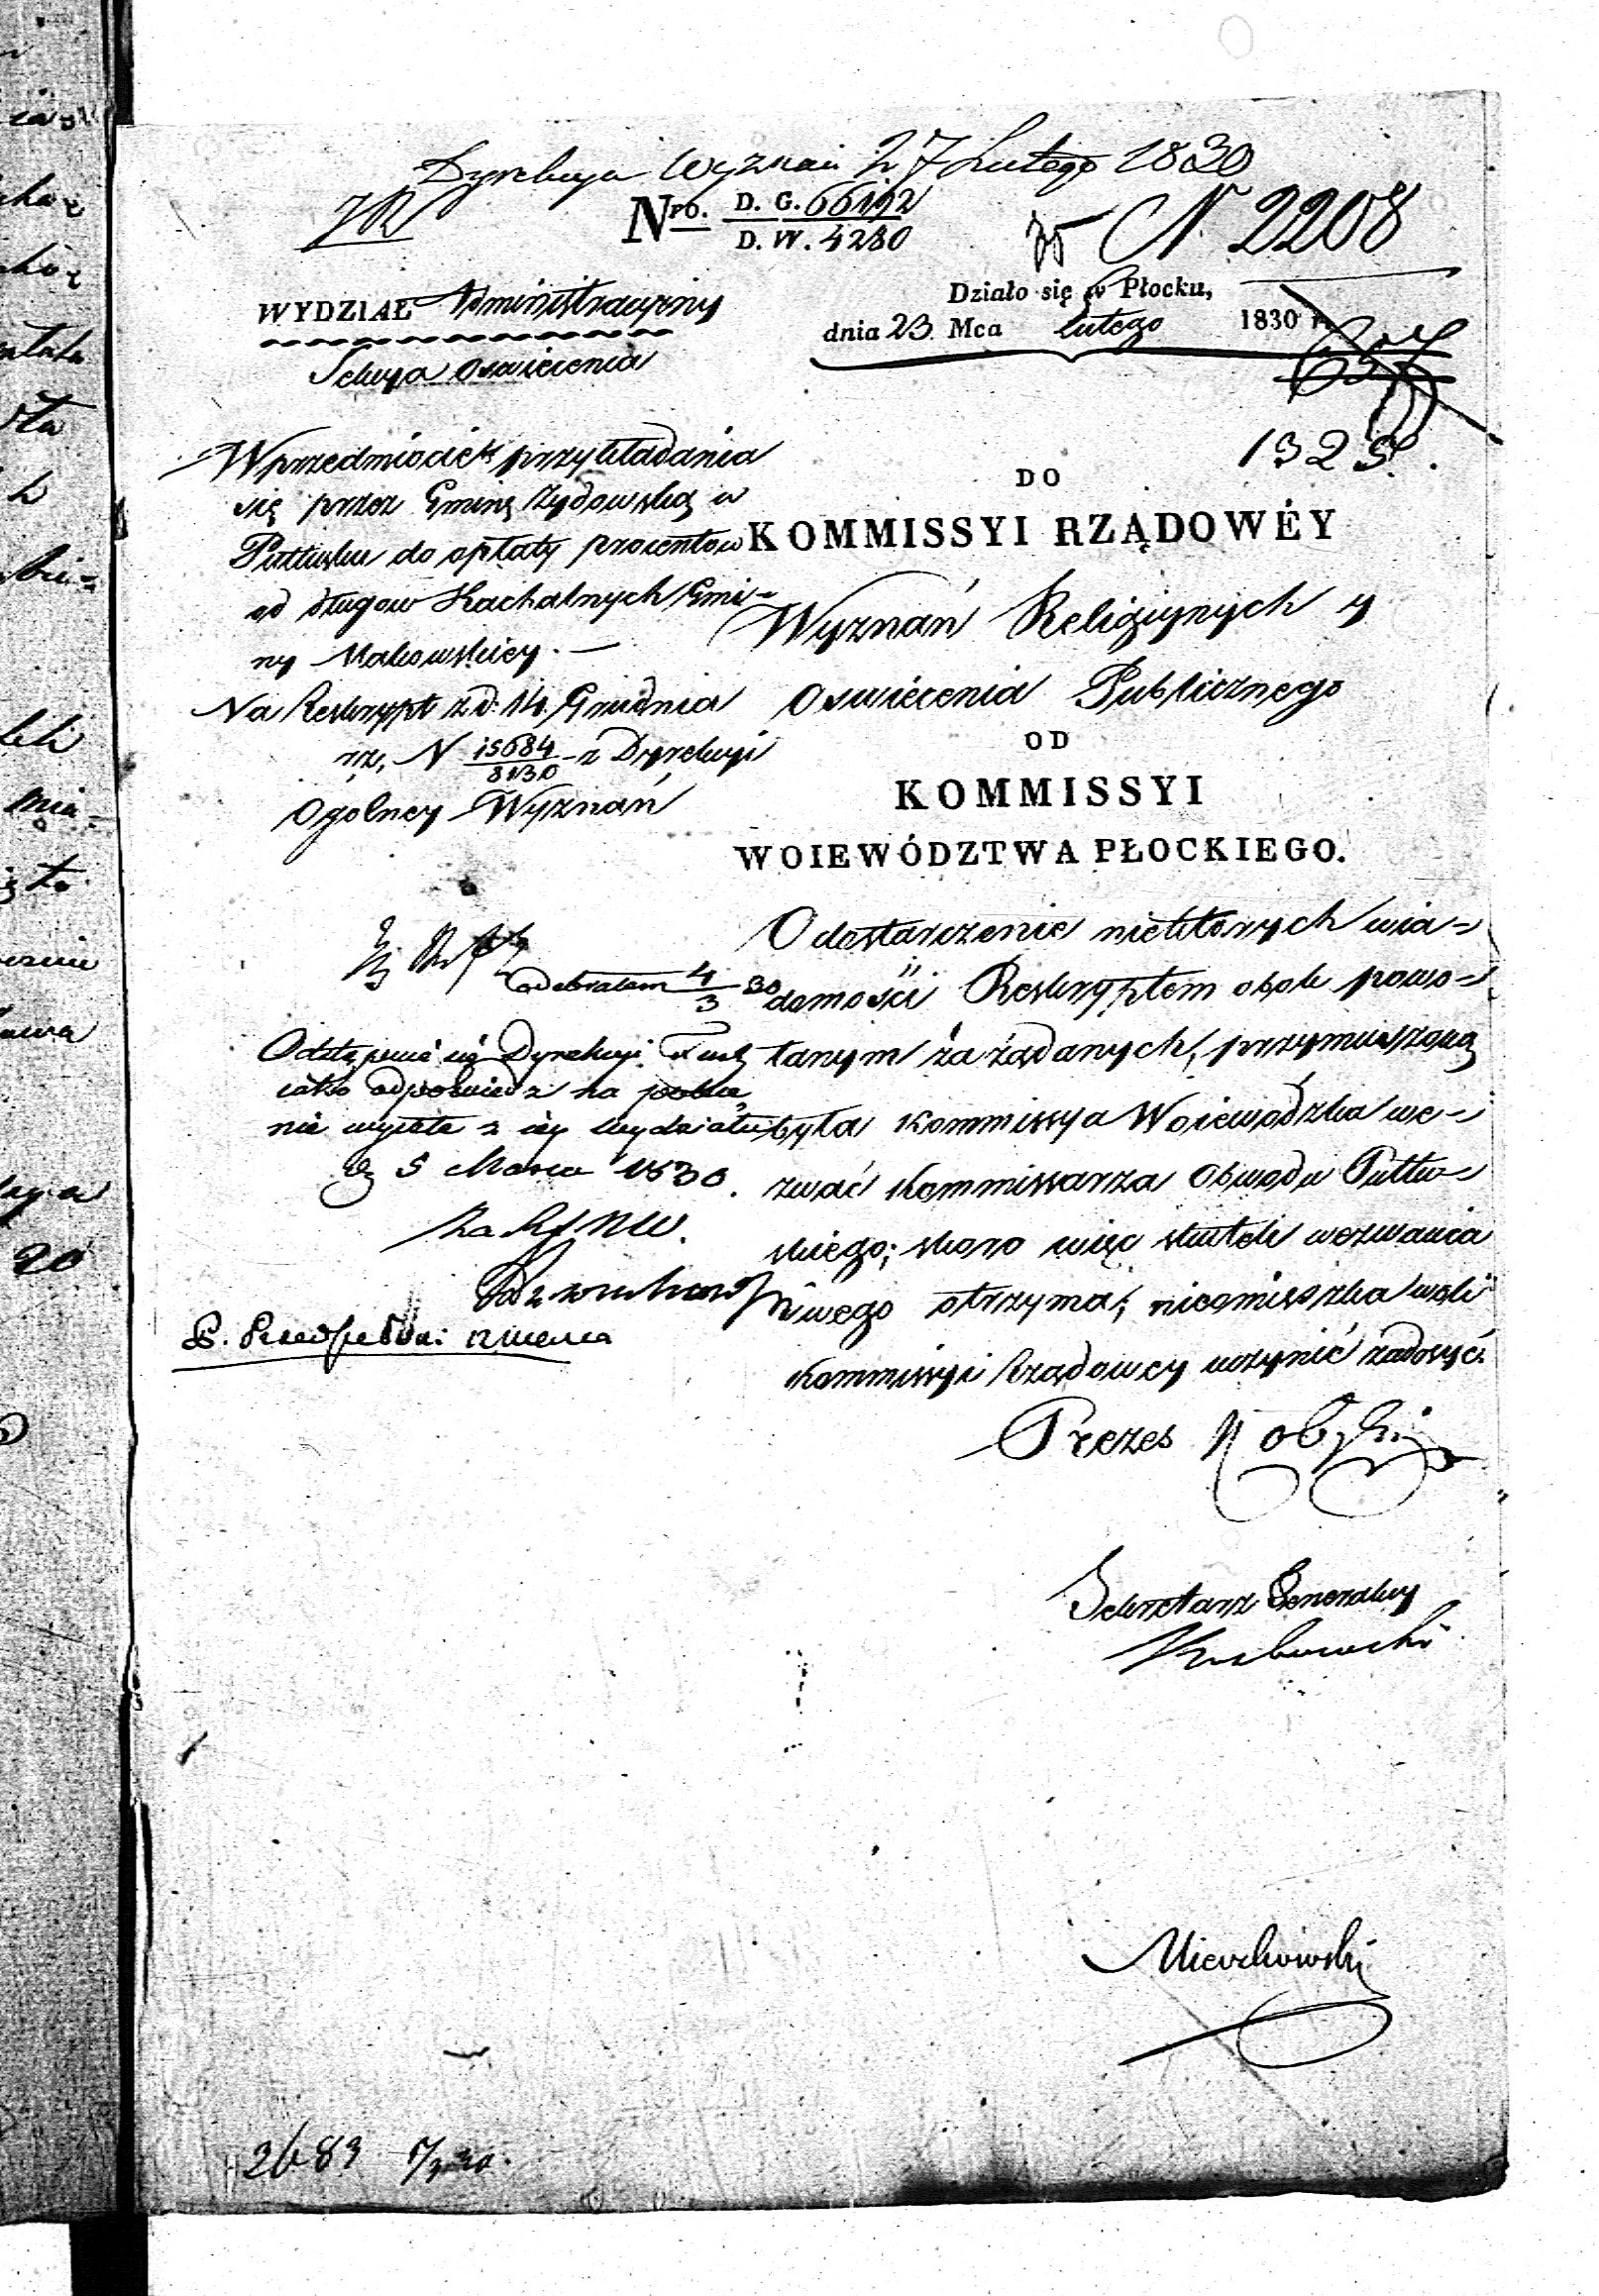 Dyrekcya Wyznań 27 Lutego 1830
Nro. D. G. 66192
D. W. 4280
N 2208
WYDZIAŁ Administracyiny
Sekcya Oswiecenia
Działo się w Płocku,
dnia 23 Mca lutego 1830 r.
1323
W przedmiocie przykładania
się przez Gminę żydowską w
Pułtusku do opłaty procentow
od długow Kachalnych Gmi-
ny Makowskiey. —
Na Reskrypt z d. 14 Grudnia
N 15684 z Dyrekcyi
8130
Ogolney Wyznań
DO
KOMMISSYI RZĄDOWÉY
Wyznań Religiynych y
Oswiecenia Publicznego
OD
KOMMISSYI
WOIEWÓDZTWA PŁOCKIEGO.
O dostarczenie niektórych wia-
domości Reskryptem obok powo-
łanym zażądanych, przymuszoną
była Kommissya Woiewodzka we-
zwać Kommissarza Obwodu Pułtu-
skiego; skoro więc skutek wezwania
swego otrzyma, nieomieszka woli
Kommissyi Rządowey uczynić zadosyć.
odebrałem 4/3 30
Odstępuie się Dyrekcyi
iako odpowiedz na
nie wyszłe z iey wydziału
d 5 Marca 1830.
Prezes
Sekretarz Generalny
2683